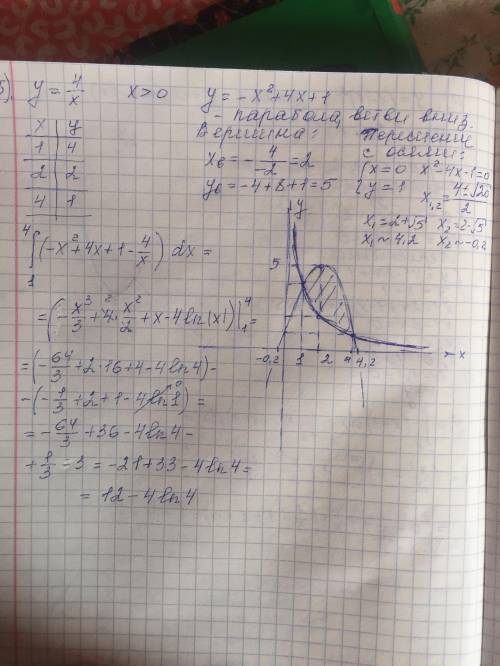 5). y = 4/x   x > 0
x | y
1 | 4
2 | 2
4 | 1
y = -x²+4x+1
- парабола, ветви вниз.
Вершина:
x_в = -4/-2 = 2
y_в = -4+8+1=5
Пересечение
с осями:
{x=0   x²-4x-1=0
{y=1   x₁,₂ = (4±√20)/2
x₁=2+√5   x₂=2-√5
x₁~4,2   x₂~-0,2
∫₁⁴ (-x²+4x+1-4/x) dx =
= (-x³/3 + 4·x²/2 + x - 4ln|x|)|₁⁴ =
= (-64/3 + 2·16+4-4ln4) -
- (-1/3+2+1-4ln1) =
= -64/3 + 36 - 4ln4 -
+ 1/3 - 3 = -21+33-4ln4 =
= 12-4ln4
y
5
-0,2 1 2 4 4,2 x